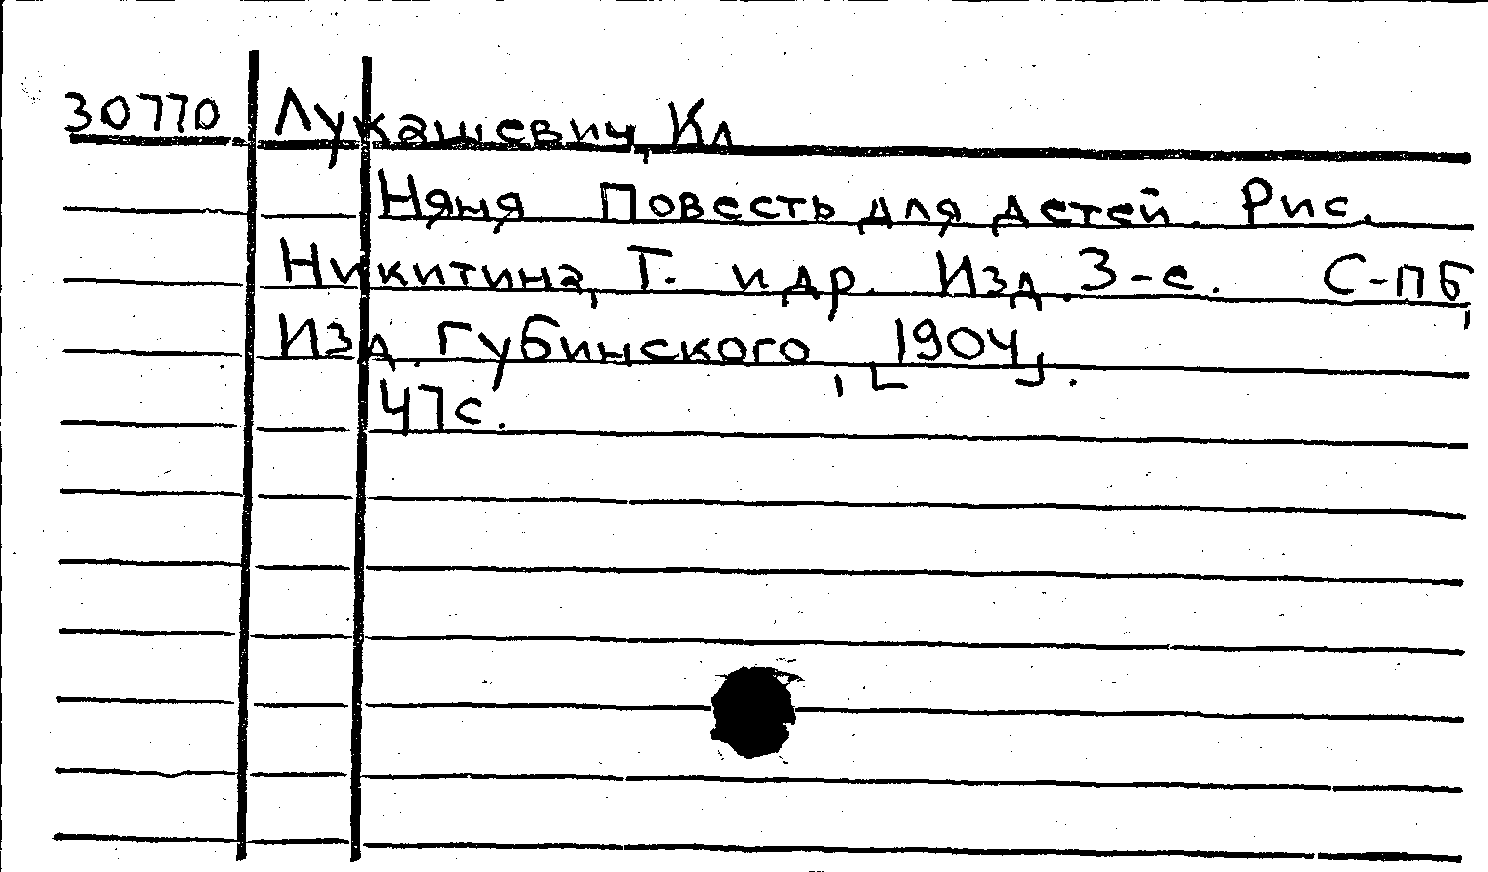 30770 Лукашевич, Кл
Няня Повесть для детей. Рис.
Никитина, Т. и др. Изд. 3-е. С-ПБ,
Изд. Губинского, [1904].
47с.